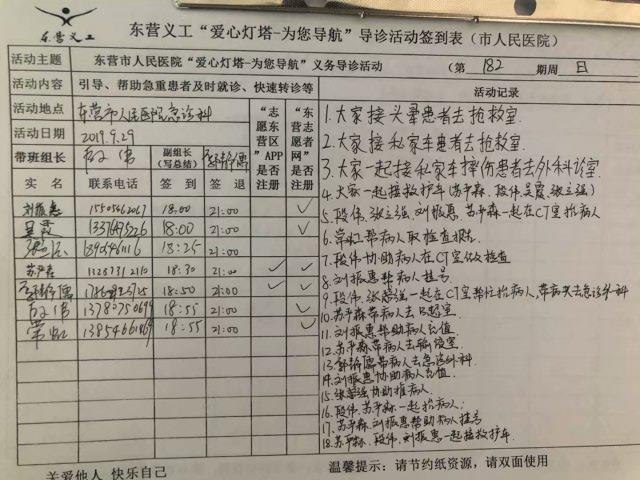 东营义工
东营义工“爱心灯塔-为您导航”导诊活动签到表（市人民医院）
活动主题 东营市人民医院“爱心灯塔-为您导航”义务导诊活动 （第 182 期周 日
活动内容 引导、帮助急重患者及时就诊、快速转诊等
活动地点 东营市人民医院急诊科
活动日期 2019.9.29
带班组长 段伟 副组长（写总结）
实名 联系电话 签到 签退 “志愿东营区”APP是否注册 “东营志愿者网”是否注册
刘振惠 15505462067 18:00 21:00 ✓
吴霞 18:00 21:00 ✓
18:25 21:00
苏平森 18:30 21:00 ✓ ✓
18:50 21:00 ✓ ✓
段伟 18:55 21:00 ✓
常虹 18:55 21:00 ✓
活动记录
1.大家接头晕患者去抢救室.
2.大家接私家车患者去抢救室.
3.大家一起接私家车摔伤患者去外科诊室.
4.大家一起接救护车(苏平森、段伟、吴霞、张立强)
5.段伟、张立强、刘振惠、苏平森一起在CT室抬病人
6.常虹帮病人取检查报告.
7.段伟协助病人在CT室做检查
8.刘振惠帮病人挂号.
9.段伟、张立强一起在CT室帮忙抬病人,带病人去急诊外科
10.苏平森带病人去B超室.
11.刘振惠帮助病人充值
12.苏平森带病人去输液室.
13.带病人去急诊外科.
14.刘振惠协助病人充值.
15.张立强协助推病人.
16.段伟、苏平森一起抬病人.
17.苏平森、刘振惠帮助病人挂号
18.苏平森、段伟、刘振惠一起接救护车.
关爱他人 快乐自己
温馨提示：请节约纸资源，请双面使用